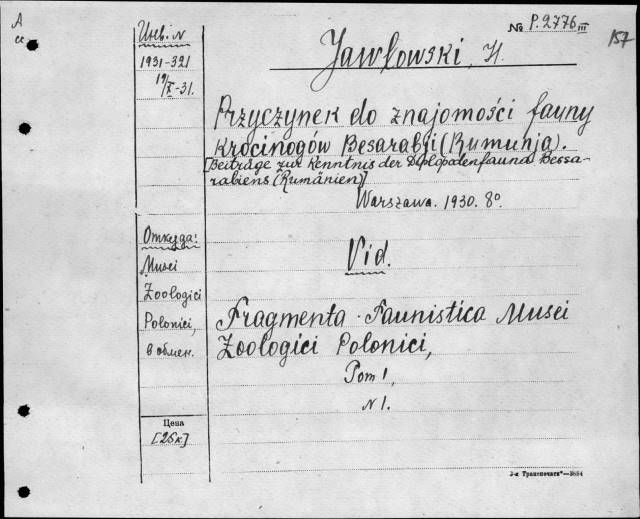 A
№ P.2776 III
157
Инв. N
1931-321
19/X-31.
Jawłowski, H.
Przyczynek do znajomości fauny
krocinogów Besarabji (Rumunja).
[Beiträge zur Kenntnis der Diplopodenfauna Bessa-
rabiens (Rumänien)]
Warszawa. 1930. 8°.
Откуда:
Musei
Zoologici
Polonici,
в обмен.
Vid.
Fragmenta Faunistica Musei
Zoologici Polonici,
Tom I,
N 1.
Цена
[25к.]
3-я Транспечати—3684